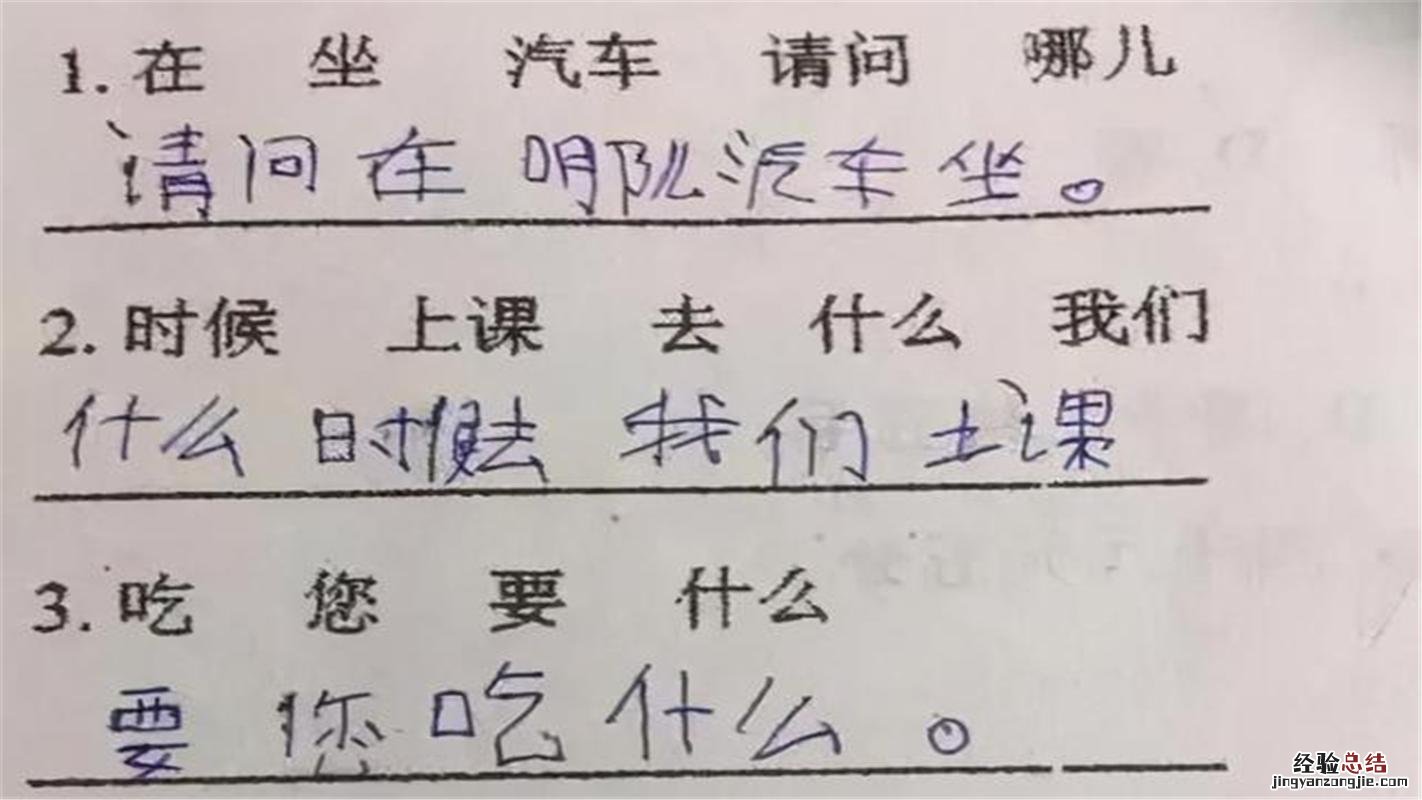 1. 在 坐 汽车 请问 哪儿
请问 在 哪儿 汽车 坐。
2. 时候 上课 去 什么 我们
什么 时候去 我们 上课
3. 吃 您 要 什么
要 您 吃 什么。
经验总结
jingyanzongjie.com